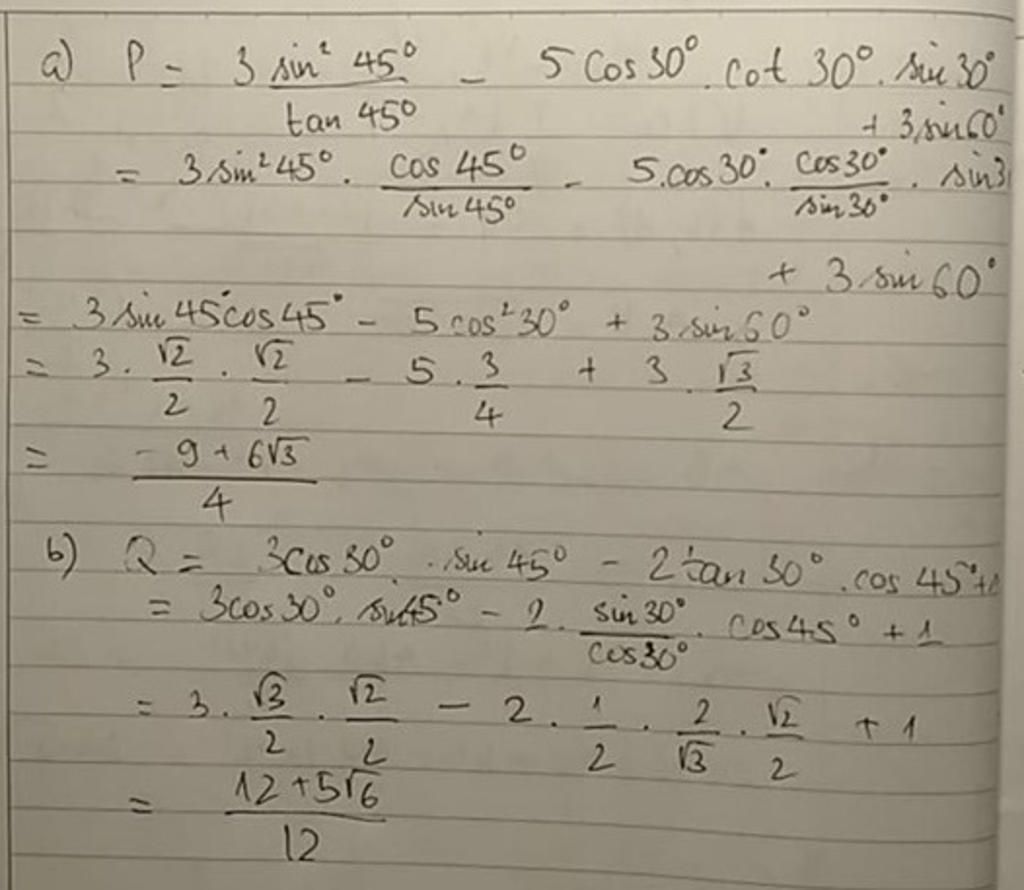 a) P = 3 sin² 45° / tan 45° - 5 cos 30° . cot 30° . sin 30°
+ 3 sin 60°
= 3 sin² 45° . cos 45° / sin 45° - 5 . cos 30° . cos 30° / sin 30° . sin 3
+ 3 sin 60°
= 3 sin 45° cos 45° - 5 cos² 30° + 3 sin 60°
= 3 . √2/2 . √2/2 - 5 . 3/4 + 3 . √3/2
= (-9 + 6√3) / 4
b) Q = 3 cos 30° . sin 45° - 2 tan 30° . cos 45° + 1
= 3 cos 30° . sin 45° - 2 . sin 30° / cos 30° . cos 45° + 1
= 3 . √3/2 . √2/2 - 2 . 1/2 . 2/√3 . √2/2 + 1
= (12 + 5√6) / 12